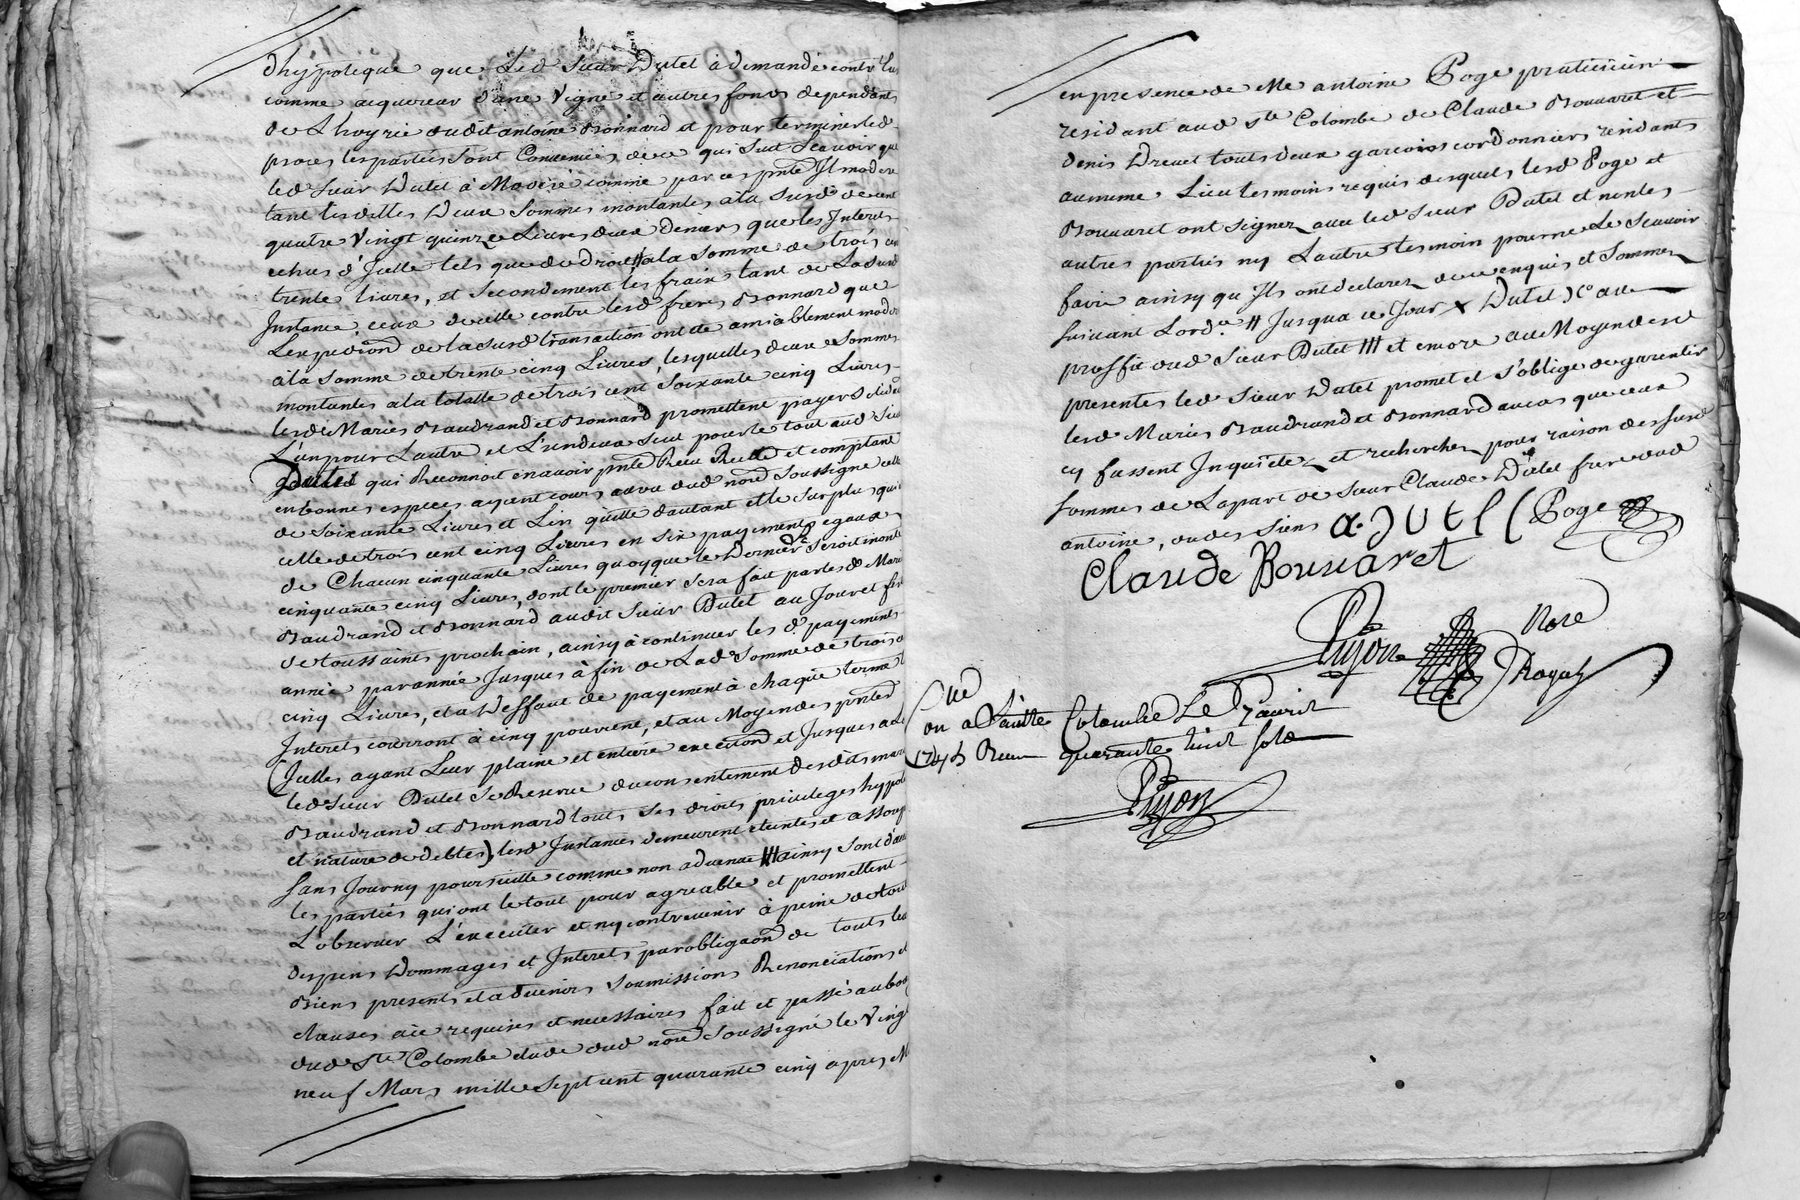 dhypoteque que Led sieur Dutel à demandé contr'Eux
comme acquereur d'une Vigne et autres fonds dependants
de L'hoyrie dudit antoine Bonnard et pour terminer led
proces les parties sont Convenües de ce qui suit Scavoir que
led sieur Dutel à Moderé comme par ces pntes Il modere
tant lesdittes Deux sommes montantes à la susd de cent
quatre Vingt quinze Livres deux deniers que les Interets
echus d'Icelle tels que de droit à la somme de trois cent
trente livres, et secondement les frais tant de La susd
Instance, ceux de celle contre lesd freres Bonnard que
L'expedion de la susd transaction ont été amiablement moderé
à la somme de trente cinq Livres, lesquelles deux sommes
montantes a la totalle de trois cent soixante cinq Livres
lesd Mariés Baudrand et Bonnard promettent payer solidre
L'un pour L'autre et L'un deux seul pour le tout aud sieur
Dutel qui Reconnoit en avoir pnte Receu Reelle et comptant
en bonnes especes ayant cours au vu dud nore soussigné celle
de soixante Livres et L'en quitte d'autant et le surplus qui
celle de trois cent cinq Livres en six payements egaux
de Chacun cinquante Livres quoyque le Dernier seroit monté
cinquante cinq Livres, dont le premier sera fait par lesd Mariés
Baudrand et Bonnard audit sieur Dutel au Jour et feste
de toussaints prochain, ainsy à continuer les d. payements
année par année Jusques à fin de Lad somme de trois cent
cinq Livres, et a Deffaut de payement à chaque terme les
Interets courront à cinq pour cent, et au Moyen des pntes
(Icelles ayant Leur plaine et entiere execution et Jusques a Ce
led sieur Dutel se Reserve du consentement desdits mariés
Baudrand et Bonnard touts ses droits privileges hypoteques
et nature de debtes), lesd Instances demeurent eteintes et assoupies
sans Jour ny poursuitte comme non advenue /// ainsy sont d'accord
les parties qui ont le tout pour agreable et promettent
L'observer L'executer et ny contrevenir à peine de tous
despens Dommages et Interets par obligaon de touts leurs
Biens presents et a devenirs soumissions Renonciations et
clauses à ce requises et necessaires fait et passé au bourg
dud Ste Colombe etude dud nore soussigné le Vingt
neuf Mars mille sept cent quarante cinq apres Midy
en presence de Me antoine Poge praticien
residant aud Ste Colombe de Claude Bouvaret et
denis Drevet touts deux garcons cordonniers residants
au meme Lieu tesmoins requis desquels lesd Poge et
Bouvaret ont signez avec led sieur Dutel et non les
autres parties ny L'autre tesmoin pour ne Le scavoir
faire ainsy qu'Ils ont declarez de ce enquis et sommez
suivant Lordce // Jusqua ce Jour X Dutel )( au
proffit dud sieur Dutel /// et encore au Moyen desd
presentes led sieur Dutel promet et s'oblige de garentir
lesd Mariés Baudrand et Bonnard au cas que ceux
cy fussent Inquietez et recherchez pour raison des susd
sommes de La part de sieur Claude Dutel frere dud
antoine, ou des siens a. Jutel Poge
Claude Bouvaret
Pujon Nore
Royal
Cue
ou a Sainte Colombe Le 7 avril
1745 Receu quarante huit sols
Pujon